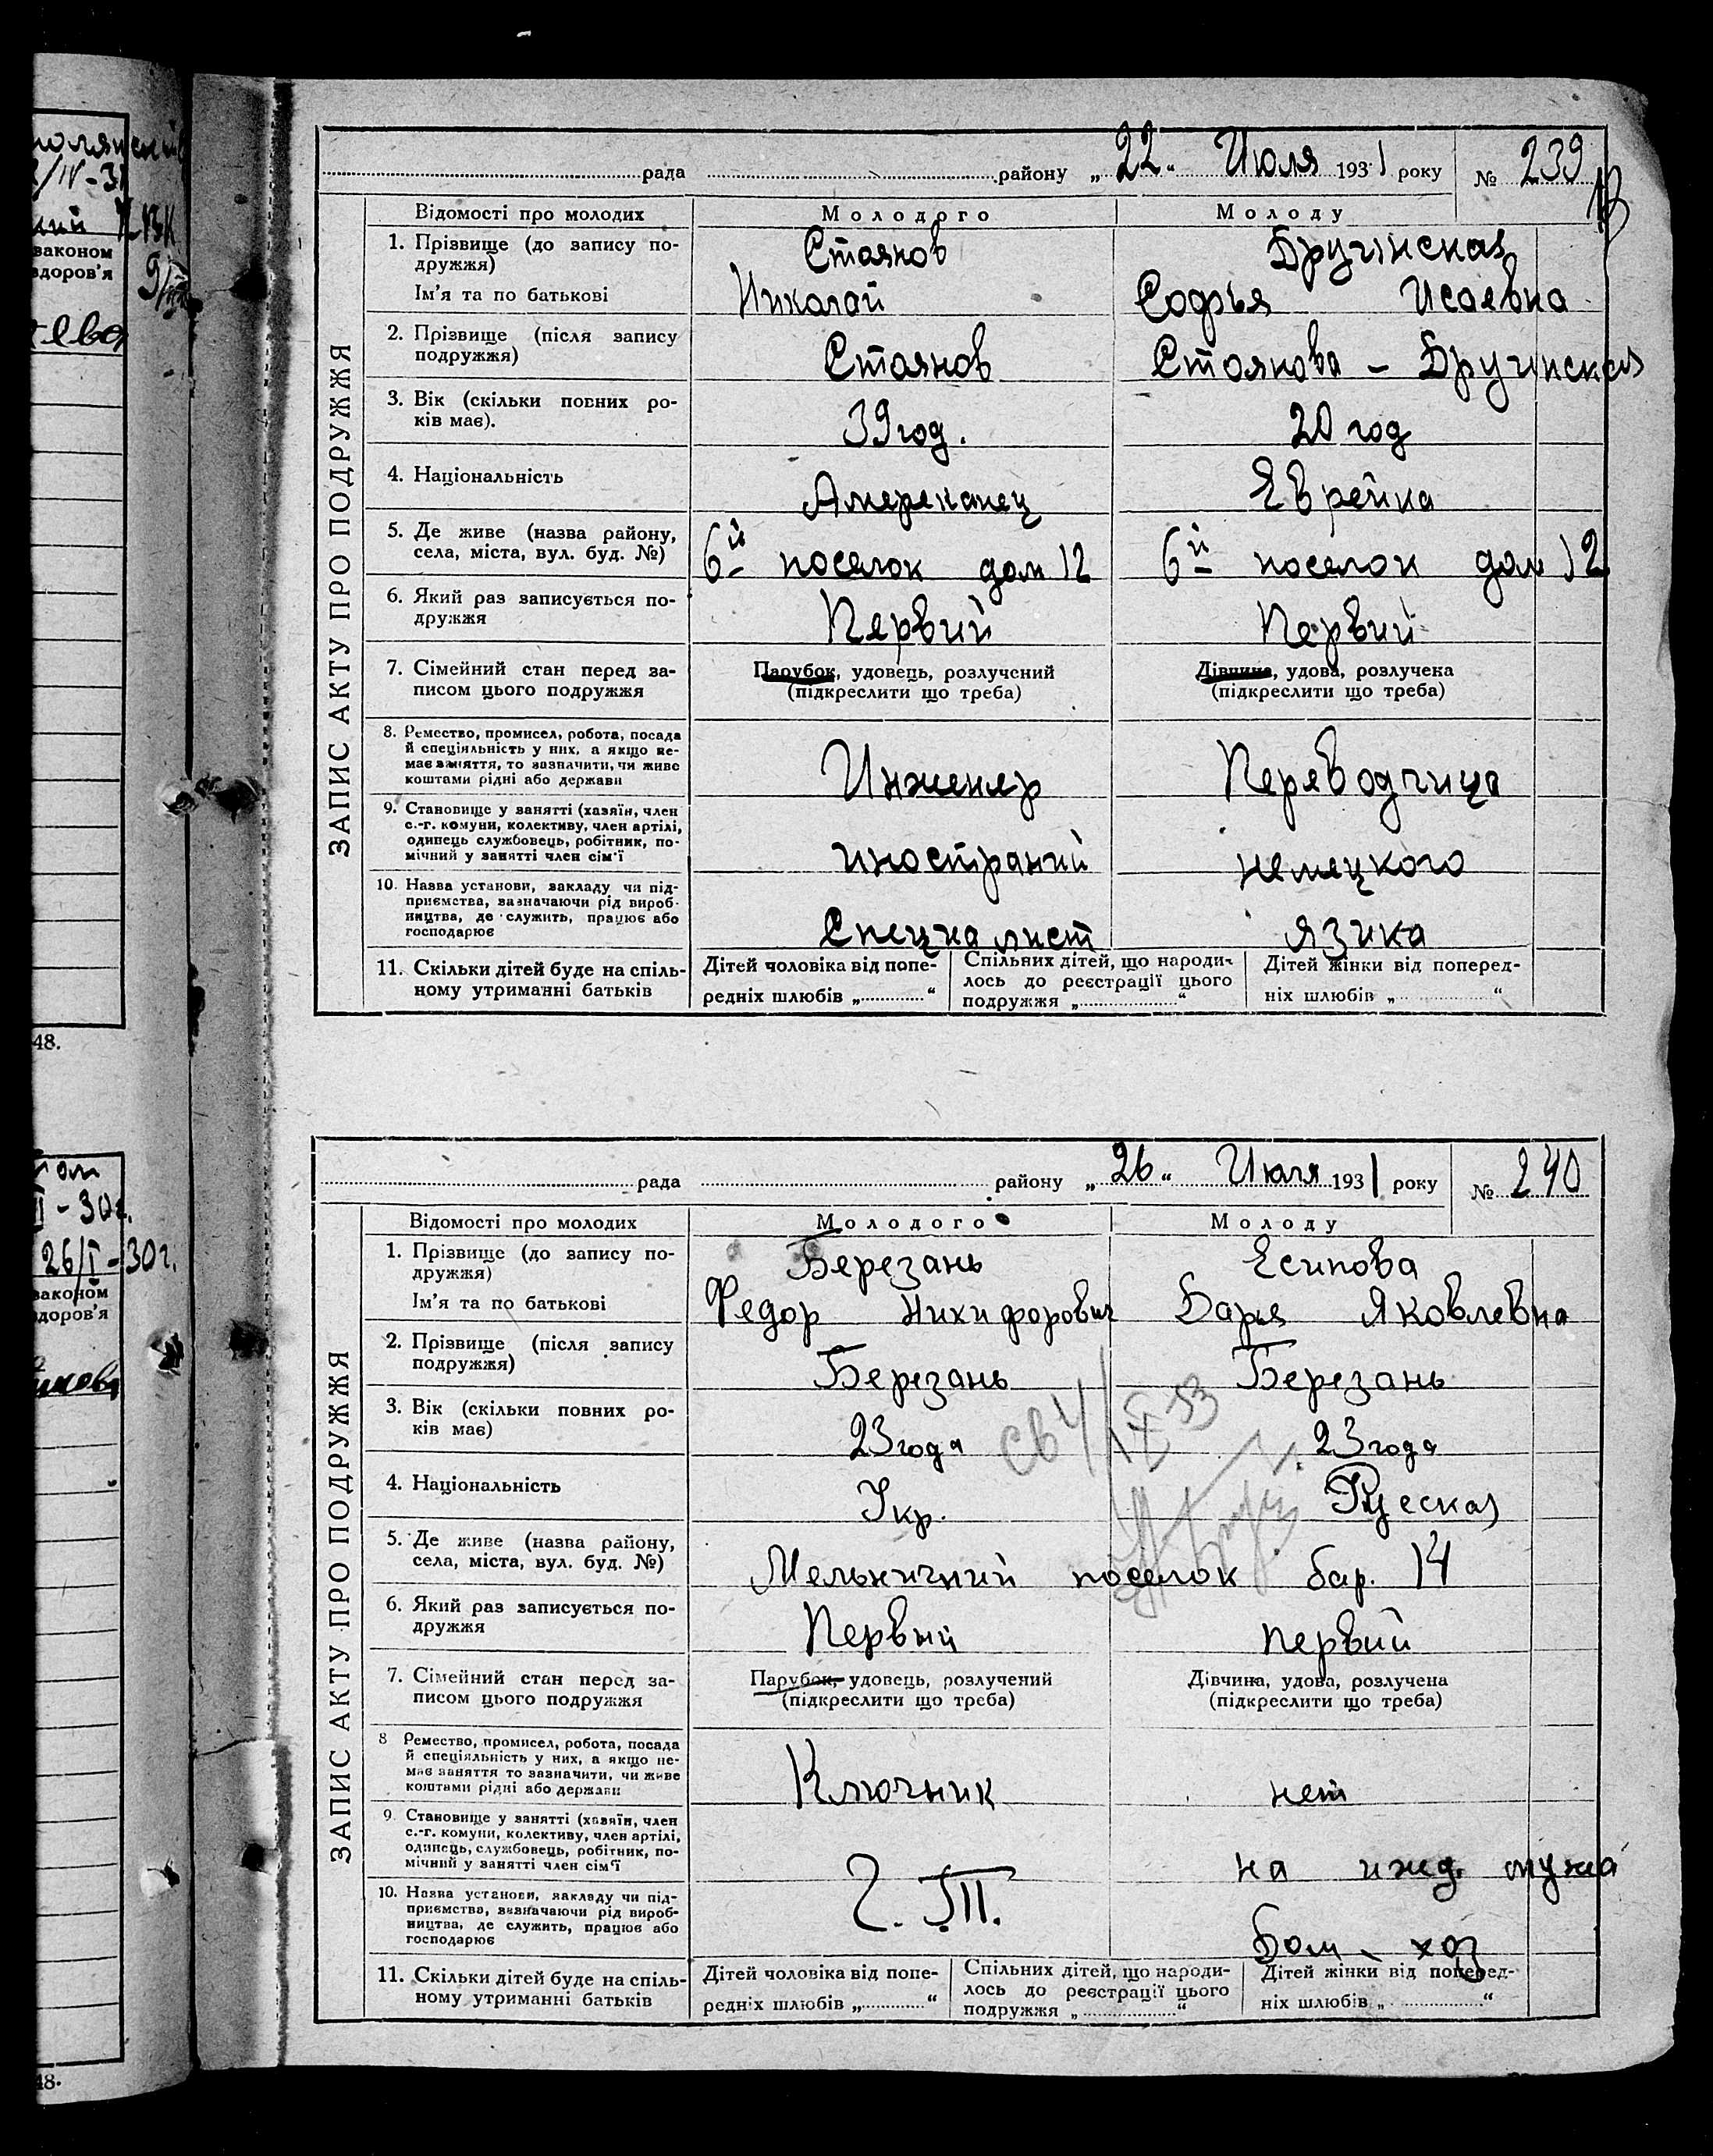 полянский
законом
здоров'я
ева
48.
рада района „22" Июля 1931 року № 239
Відомості про молодих Молодого Молоду
1. Прізвище (до запису по-
дружжя) Стоянов Бручинская
Ім'я та по батькові Николай Софья Исаевна
2. Прізвище (після запису
подружжя) Стоянов Стоянова - Бручинская
3. Вік (скільки повних ро-
ків має). 39 год. 20 год
4. Національність Американец Еврейка
5. Де живе (назва району,
села, міста, вул. буд. №) 6й поселок дом 12 6й поселок дом 12
6. Який раз записується по-
дружжя Первий Первий
7. Сімейний стан перед за-
писом цього подружжя
Парубок, удовець, розлучений
(підкреслити що треба)
Дівчина, удова, розлучена
(підкреслити що треба)
8. Ремество, промисел, робота, посада
й спеціяльність у них, а якщо не-
має заняття, то зазначити, чи живе
коштами рідні або держави
Инженер Переводчица
9. Становище у занятті (хазяїн, член
с.-г. комуни, колективу, член артілі,
одинець службовець, робітник, по-
мічний у занятті член сім'ї
иностраний немецкого
10. Назва установи, закладу чи під-
приємства, зазначаючи рід вироб-
ництва, де служить, працює або
господарює
Специалист язика
11. Скільки дітей буде на спіль-
ному утриманні батьків
Дітей чоловіка від попе-
редніх шлюбів „ “
Спільних дітей, що народи-
лось до реєстрації цього
подружжя „ “
Дітей жінки від поперед-
ніх шлюбів „ “
ЗАПИС АКТУ ПРО ПОДРУЖЖЯ
26/I-30г.
законом
здоров'я
48.
рада району „26" Июля 1931 року № 240
Відомості про молодих Молодого Молоду
1. Прізвище (до запису по-
дружжя) Березань Есипова
Ім'я та по батькові Федор Никифорович Дарья Яковлевна
2. Прізвище (після запису
подружжя) Березань Березань
3. Вік (скільки повних ро-
ків має) 23 года 23 года
4. Національність Укр. Русская
5. Де живе (назва району,
села, міста, вул. буд. №) Мельничний поселок бар. 14
6. Який раз записується по-
дружжя Первый первий
7. Сімейний стан перед за-
писом цього подружжя
Парубок, удовець, розлучений
(підкреслити що треба)
Дівчина, удова, розлучена
(підкреслити що треба)
8 Ремество, промисел, робота, посада
й спеціяльність у них, а якщо не-
має заняття то зазначити, чи живе
коштами рідні або держави
Ключник нет
9. Становище у занятті (хазяїн, член
с.-г. комуни, колективу, член артілі,
одинець, службовець, робітник, по-
мічний у занятті член сім'ї
на ижд. мужа
10. Назва установи, закладу чи під-
приємства, зазначаючи рід вироб-
ництва, де служить, працює або
господарює
Дом - хоз
11. Скільки дітей буде на спіль-
ному утриманні батьків
Дітей чоловіка від попе-
редніх шлюбів „ “
Спільних дітей, що народи-
лось до реєстрації цього
подружжя „ “
Дітей жінки від поперед-
ніх шлюбів „ “
ЗАПИС АКТУ ПРО ПОДРУЖЖЯ